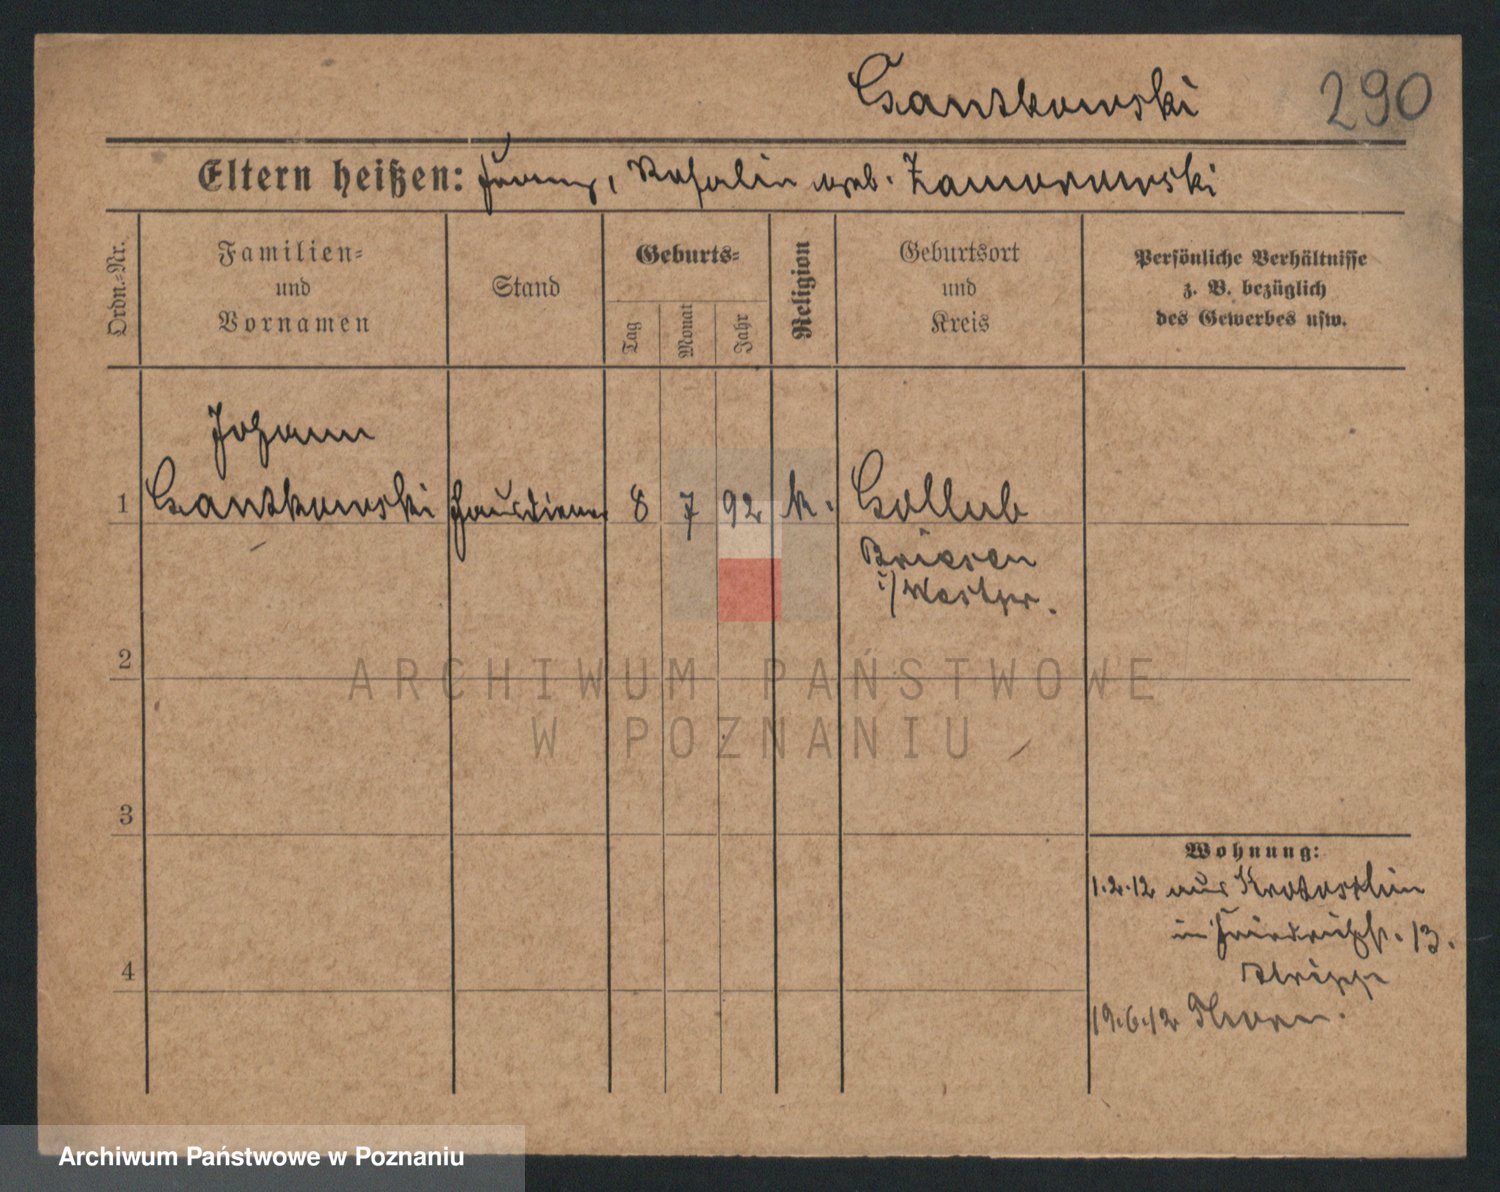 Czantkowski 290
Eltern heißen: Franz, Rosalie geb. Zamorowski
Ordn.-Nr.
Familien-
und
Vornamen
Stand
Geburts-
Tag
Monat
Jahr
Religion
Geburtsort
und
Kreis
Persönliche Verhältnisse
z. B. bezüglich
des Gewerbes usw.
Johann
1 Czantkowski Hausdiener 8 7 92 k. Gollub
Briesen
i/Westpr.
2
ARCHIWUM PAŃSTWOWE
W POZNANIU
3
Wohnung:
1.2.12 aus Krotoschin
in Friedrichst. 13.
4
19.6.12 Thorn.
Archiwum Państwowe w Poznaniu